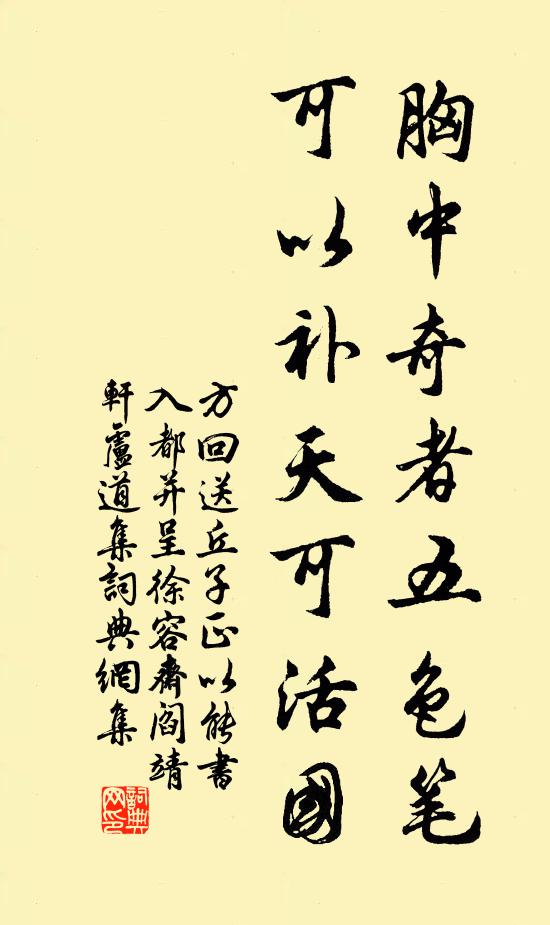 胸中奇者五色笔
可以补天可活國
方回送丘子正以能書
入都并呈徐容齋閻靖
軒盧道集詞典網集
詞典
网印